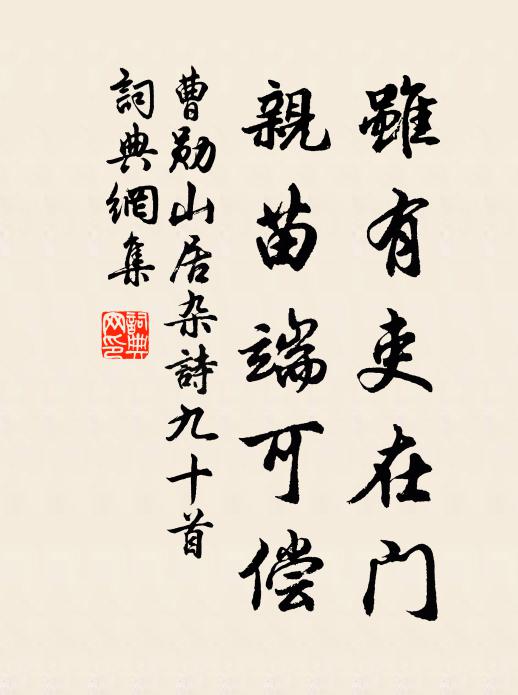 雖有吏在門
親苗端可偿
曹勋山居杂詩九十首
詞典網集
詞典网印